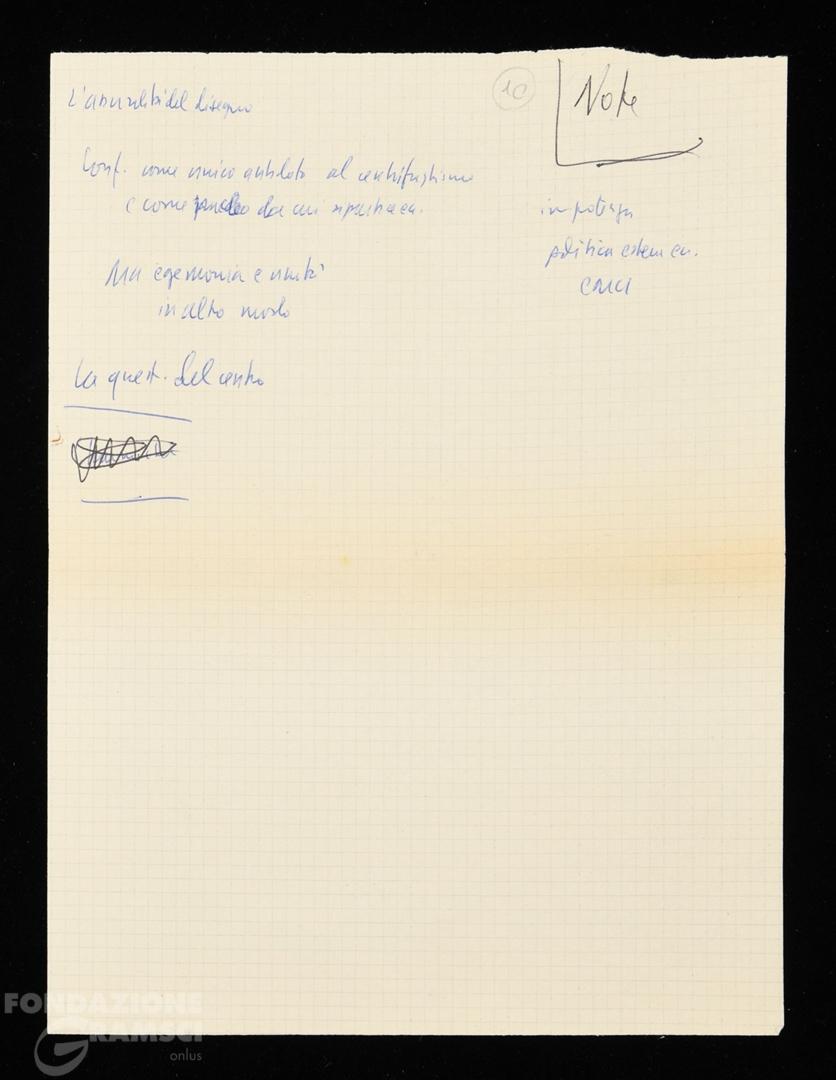 10
Note
L'assurdità del disegno
Conf. come unico antidoto al centrifughismo
e come da cui
in potenza
politica estera
Ma egemonia e unità
in altro modo
La quest. del centro
FONDAZIONE
GRAMSCI
onlus